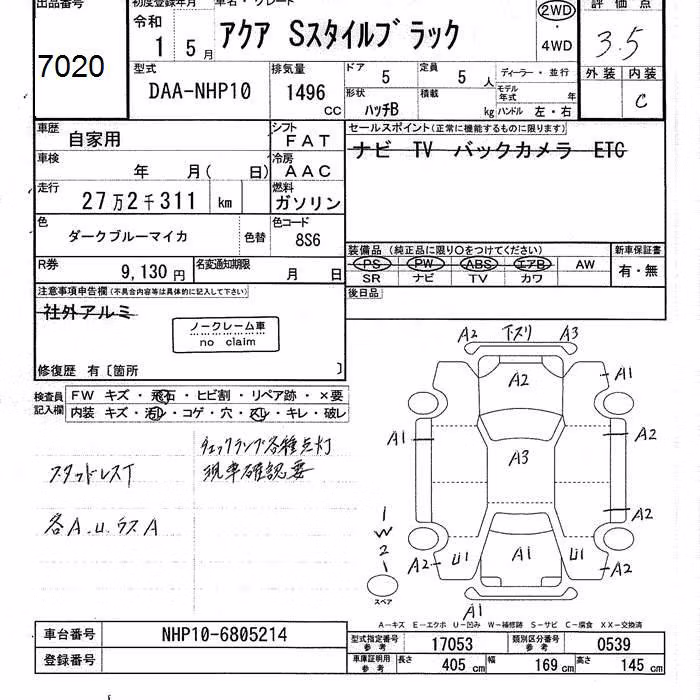 出品番号 初度登録年月 車名・グレード 評価点
7020 令和 1 5月 アクア Sスタイルブラック 2WD ・ 4WD 3.5
型式 DAA-NHP10 排気量 1496 CC
ドア 5 定員 5人 ディーラー・並行 外装 内装
形状 ハッチB 積載 kg モデル年式 年 ハンドル 左・右 C
車歴 自家用 シフト FAT セールスポイント(正常に機能するものに限ります)
ナビ TV バックカメラ ETC
車検 年 月( 日) 冷房 AAC
走行 27万2千311 km 燃料 ガソリン
色 ダークブルーマイカ 色替 色コード 8S6
装備品 (純正品に限り○をつけてください) 新車保証書
PS PW ABS エアB AW 有・無
SR ナビ TV カワ
R券 9,130円 名変通知期限 月 日
後日品
注意事項申告欄(不具合内容等は具体的に記入して下さい)
社外アルミ
ノークレーム車
no claim
修復歴 有〔箇所 〕
検査員記入欄 FW キズ・飛石・ヒビ割・リペア跡・×要
内装 キズ・汚レ・コゲ・穴・スレ・キレ・破レ
チェックランプ各種点灯
現車確認要
スタッドレスT
各A.U.ラスA
A2 下スリ A3
A2 A1
A1 A3 A2
A2
1
W
2
1
A2 U1 A1 U1 A2
スペア
A1
A−キズ E−エクボ U−凹み W−補修跡 S−サビ C−腐食 XX−交換済
車台番号 NHP10-6805214
登録番号
型式指定番号 参考 17053 類別区分番号 参考 0539
車庫証明用 参考 長さ 405 cm 幅 169 cm 高さ 145 cm